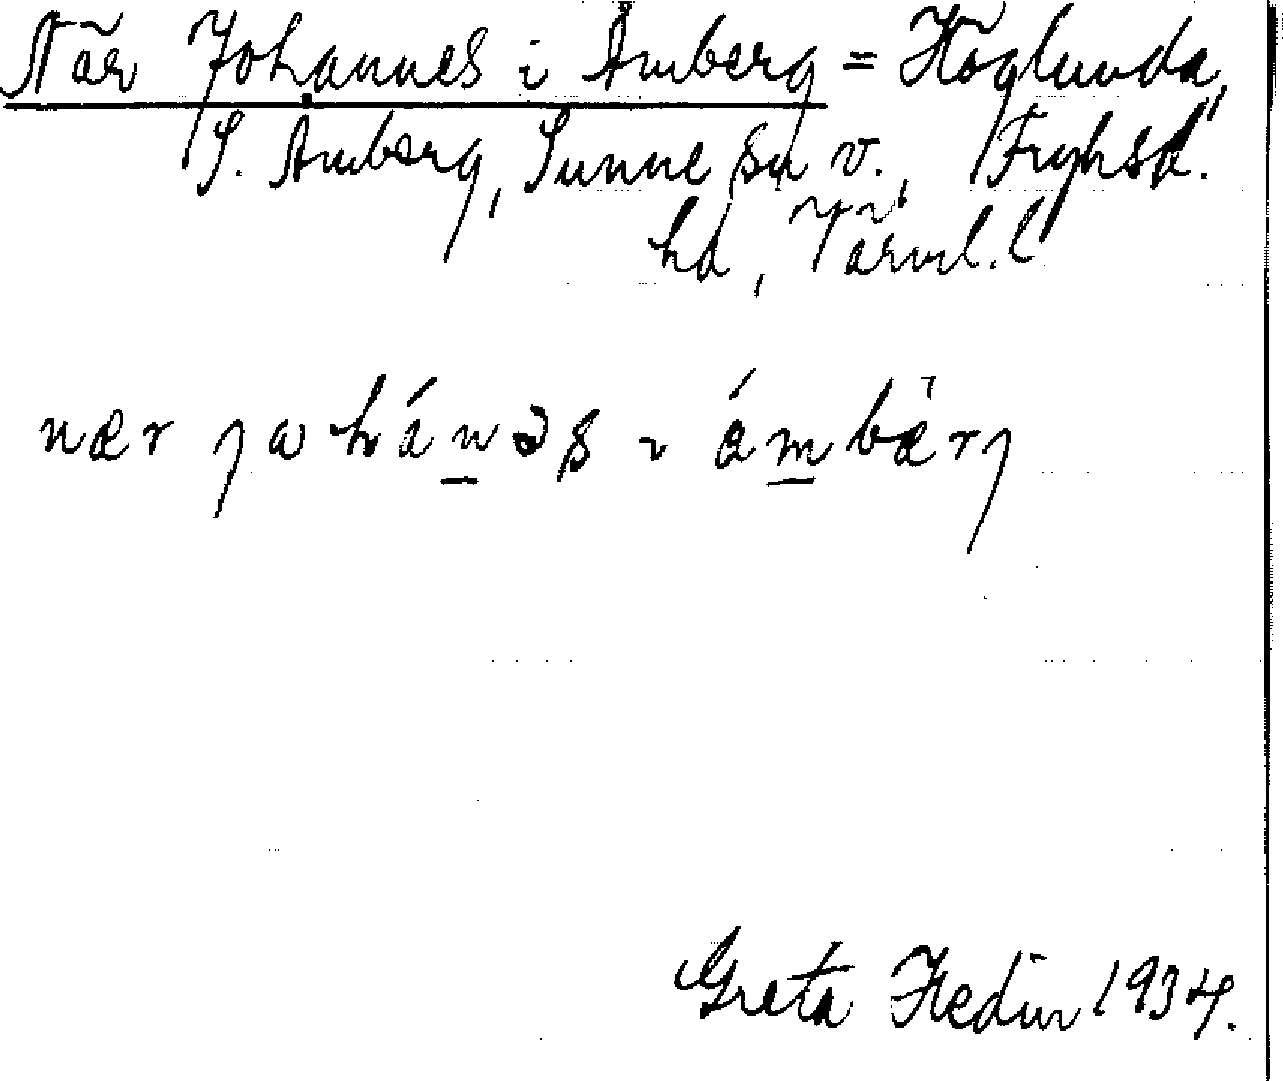 När Johannes i Åmberg = Höglunda,
S. Åmberg, Sunne sn v., Fryksd.
hd, Värml. l
nær jωhánəs ı ámbærj
Greta Hedin 1934.